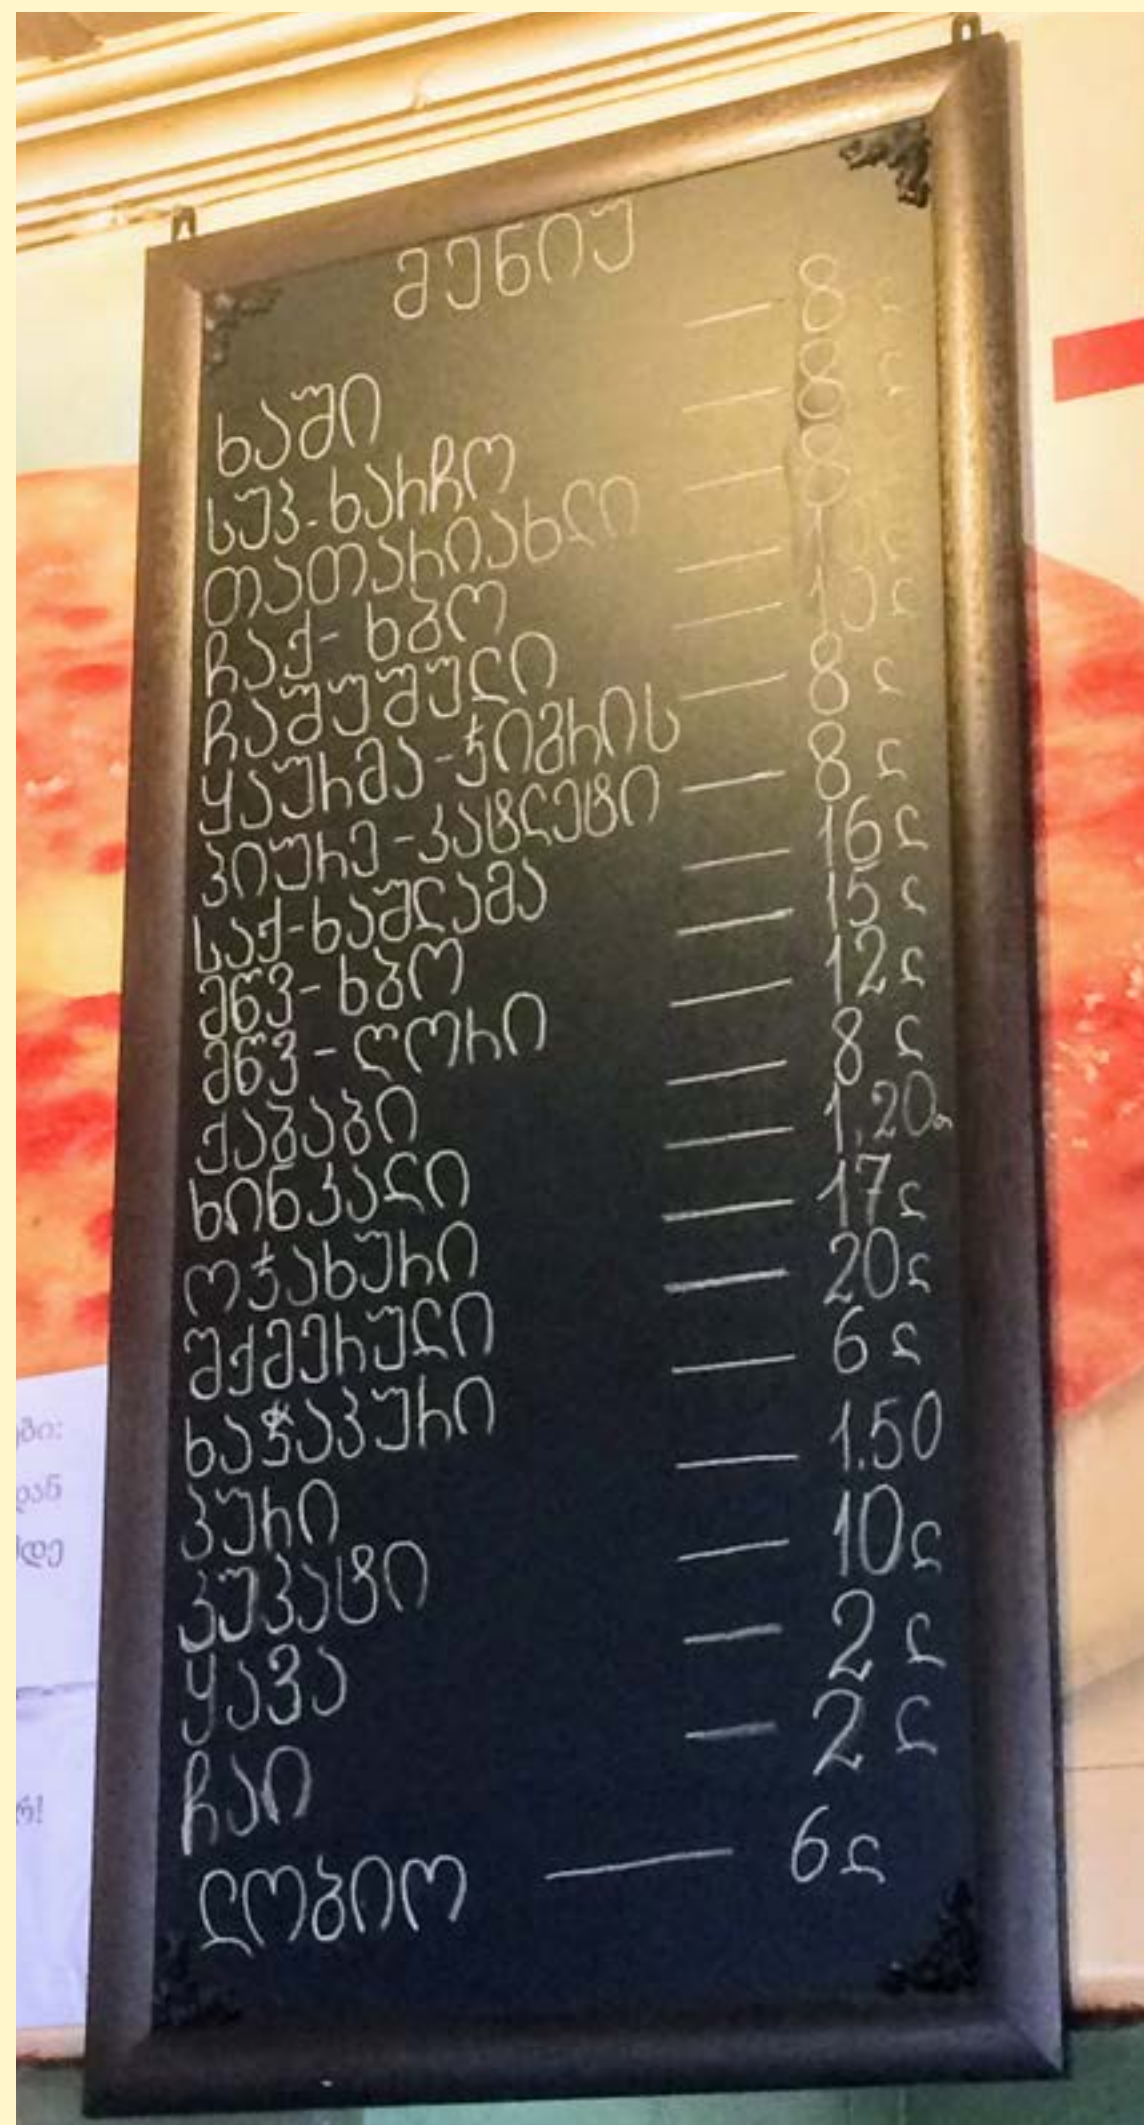 მენიუ
ხაში — 8 ლ
სუპ-ხარჩო — 8 ლ
თათარიახლი — 8
ჩაქ-ხბო — 10ლ
ჩაშუშული — 10ლ
ყაურმა-ჭიმრის — 8 ლ
პიურე-კატლეტი — 8 ლ
საქ-ხაშლამა — 16ლ
მწვ-ხბო — 15 ლ
მწვ-ღორი — 12ლ
ქაბაბი — 8 ლ
ხინკალი — 1,20თ
ოჯახური — 17ლ
შქმერული — 20ლ
ხაჭაპური — 6 ლ
პური — 1.50
კუპატი — 10ლ
ყავა — 2 ლ
ჩაი — 2 ლ
ლობიო — 6ლ
დან
მდე